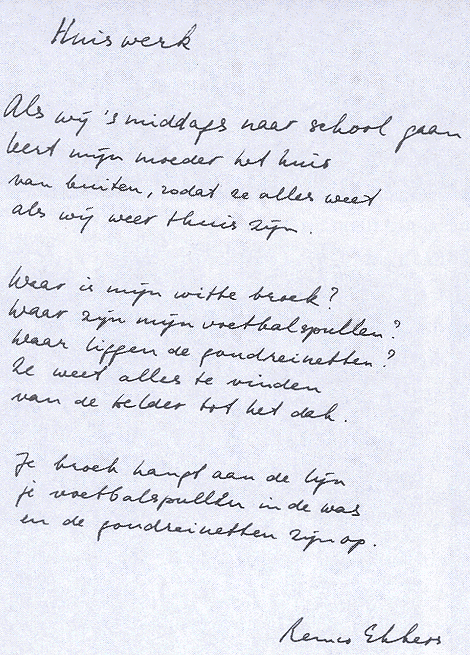 Huiswerk
Als wij 's middags naar school gaan
leert mijn moeder het huis
van buiten, zodat ze alles weet
als wij weer thuis zijn.
Waar is mijn witte broek?
Waar zijn mijn voetbalspullen?
Waar liggen de goudreinetten?
Ze weet alles te vinden
van de kelder tot het dak.
Je broek hangt aan de lijn
je voetbalspullen in de was
en de goudreinetten zijn op.
Remco Ekkers